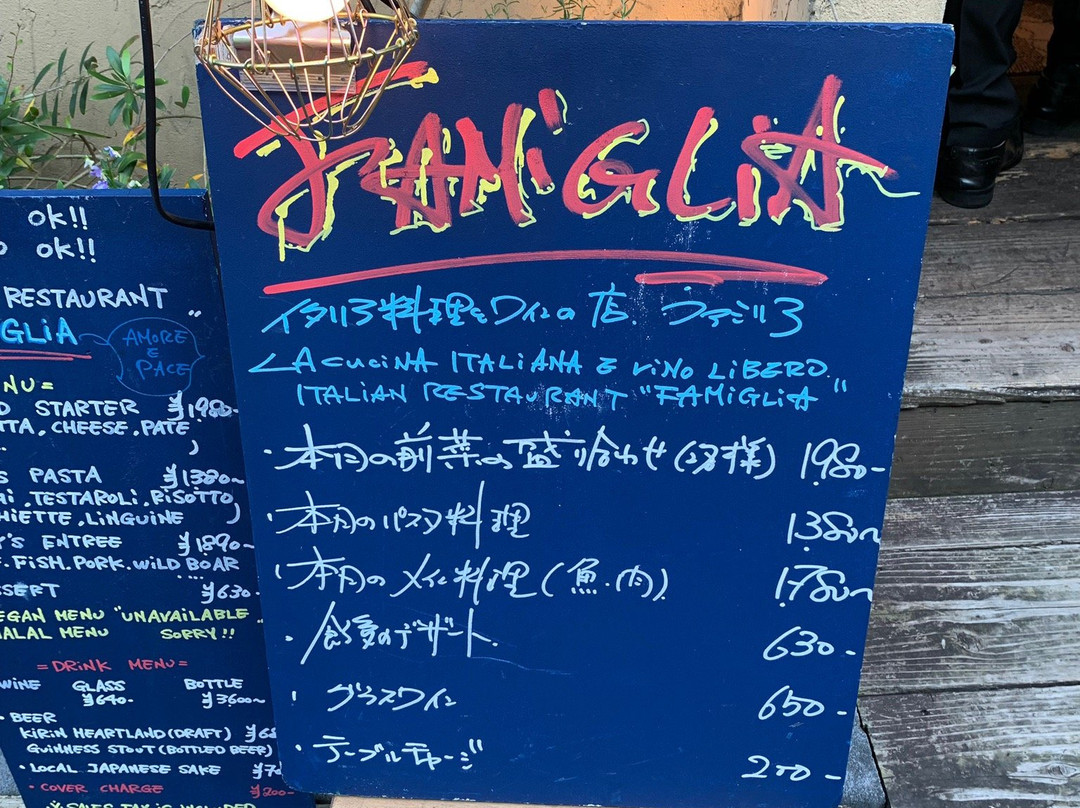 FAMiGLiA
イタリア料理とワインの店 ファミリア
LA CUCiNA ITALiANA E ViNO LiBERO.
ITALiAN RESTAURANT "FAMiGLiA"
・本日の前菜の盛り合わせ(2名様) 1,980-
・本日のパスタ料理 1,380~
・本日のメイン料理(魚・肉) 1,780~
・食後のデザート 630-
・グラスワイン 650-
・テーブルチャージ 200-
ok!!
ok!!
RESTAURANT
GLiA
AMORE
E
PACE
NU=
STARTER ¥1980-
TTA, CHEESE, PATE
)
PASTA ¥1380~
Hi, TESTAROLi, RiSOTTO
HiETTE, LiNGUiNE )
Y'S ENTREE ¥1890~
FiSH, PORK, WiLD BOAR
SSERT ¥630-
EGAN MENU "UNAVAiLABLE
ALAL MENU SORRY!!
=DRiNK MENU=
WiNE GLASS BOTTLE
¥640- ¥3600~
・BEER
KiRiN HEARTLAND(DRAFT) ¥68
GUiNNESS STOUT(BOTTLED BEER)
・LOCAL JAPANESE SAKE ¥70
・COVER CHARGE ¥200-
※SALES TAX iS iNCLUDED